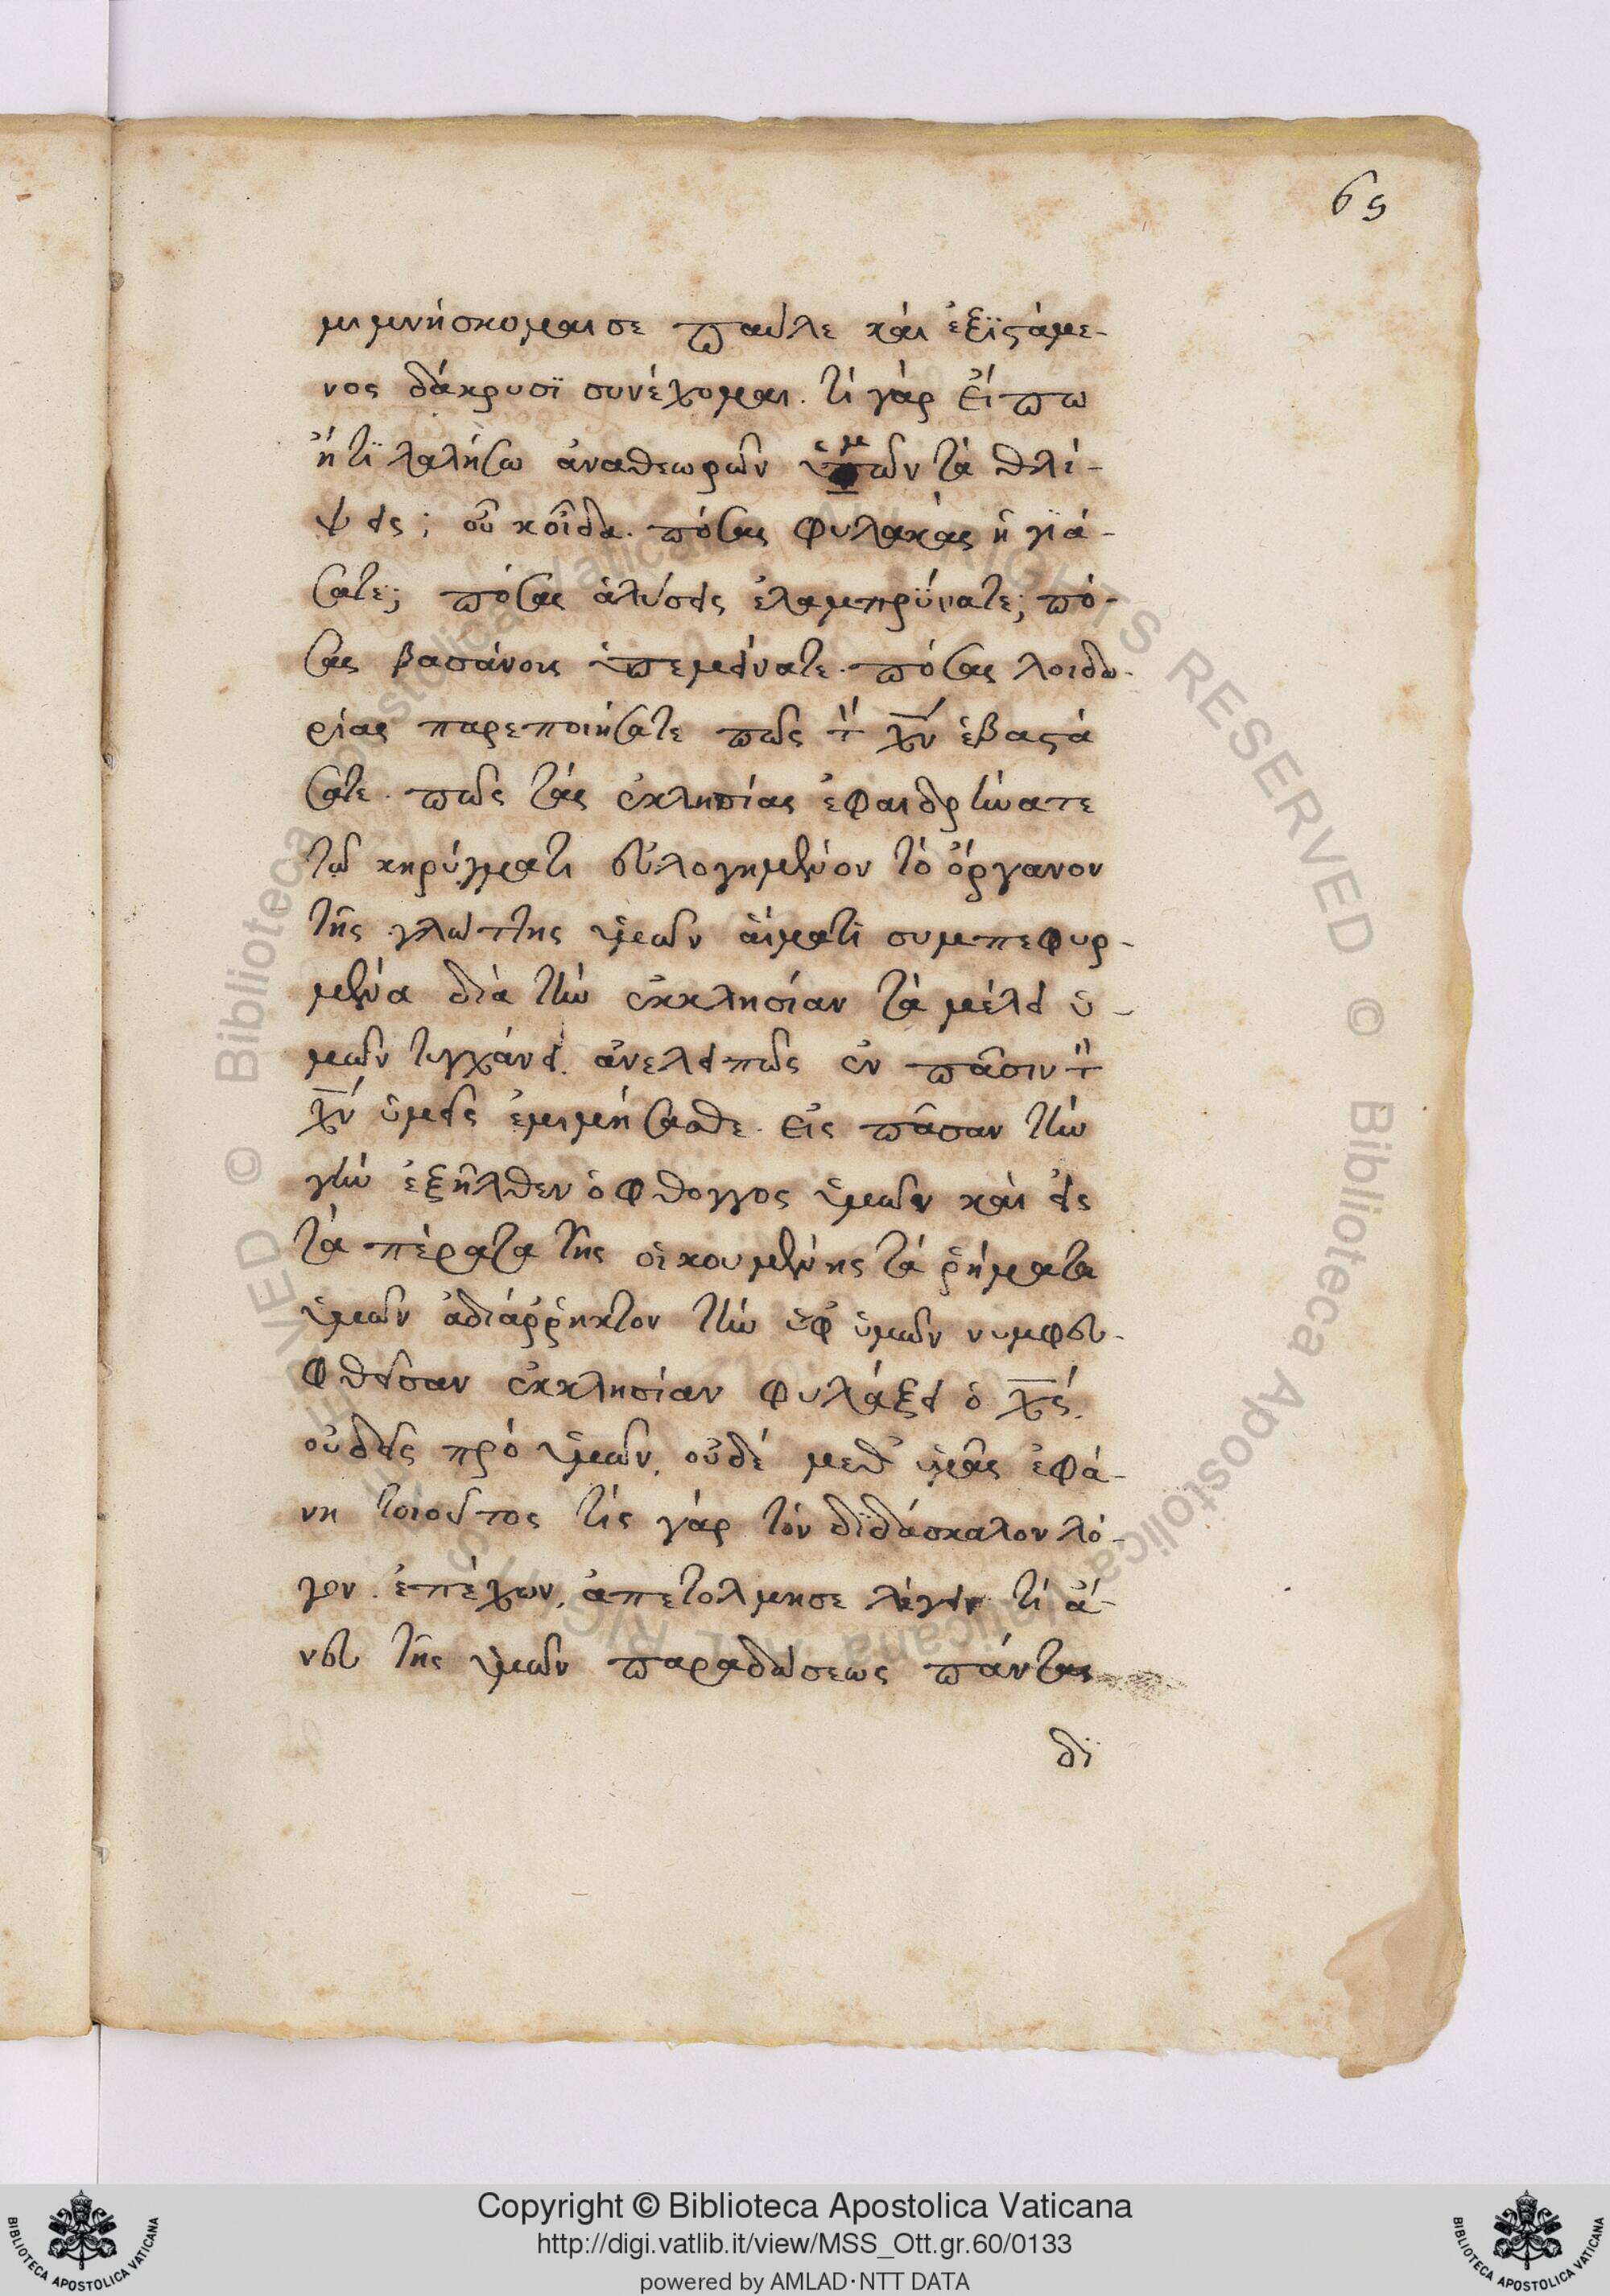 65
μιμνήσκομαι σε παύλε καὶ ἐξϊστάμε-
νος δάκρυσϊ συνέχομαι. τί γὰρ εἴπω
ἤ τϊ λαλήσω ἀναθεωρῶν ὑμῶν τὰ θλί-
ψεις; οὐκ οἶδα. πόσας φυλακὰς ἡγϊά-
σατε; πόσας ἁλύσεις ἐλαμπρΰνατε; πό-
σας βασάνοις ὑπεμείνατε. πόσας λοιδω-
ρίας παρεποιήσατε πῶς τὸν χν ἐβαστά
σατε. πῶς τὰς ἐκλησίας ἐφαιδρύνατε
τῶ κηρύγματι εὐλογημένον τὸ ὄργανον
τῆς γλώττης ὑμῶν αἵματϊ συμπεφυρ-
μένα διὰ τὴν ἐκκλησίαν τὰ μέλει ὑ-
μῶν τυγχάνει. ἀνελειπῶς ἐν πᾶσιν τὸν
χν ὑμεῖς ἐμιμήσασθε. εἰς πᾶσαν τὴν
γῆν ἐξῆλθεν ὁ φθογγος ὑμῶν καὶ εἰς
τὰ πέρατα τῆς οἰκουμένης τὰ ῥήματα
ὑμῶν ἀδιάῤῥηκτον τὴν ὑφ ὑμῶν νυμφευ-
φθεῖσαν ἐκκλησίαν φυλάξει ὁ χς.
οὐδεὶς πρὸ ὑμῶν, οὐδὲ μεθ ὑμᾶς ἐφά-
νη τοιοῦτος τίς γὰρ τὸν δϊδάσκαλον λό-
γον. ἐπέχων, ἀπετολμησε λέγειν τί ἄ-
νευ τῆς ὑμῶν παραδώσεως πάντας
δϊ
Copyright © Biblioteca Apostolica Vaticana
http://digi.vatlib.it/view/MSS_Ott.gr.60/0133
powered by AMLAD·NTT DATA
BIBLIOTECA APOSTOLICA VATICANA
BIBLIOTECA APOSTOLICA VATICANA